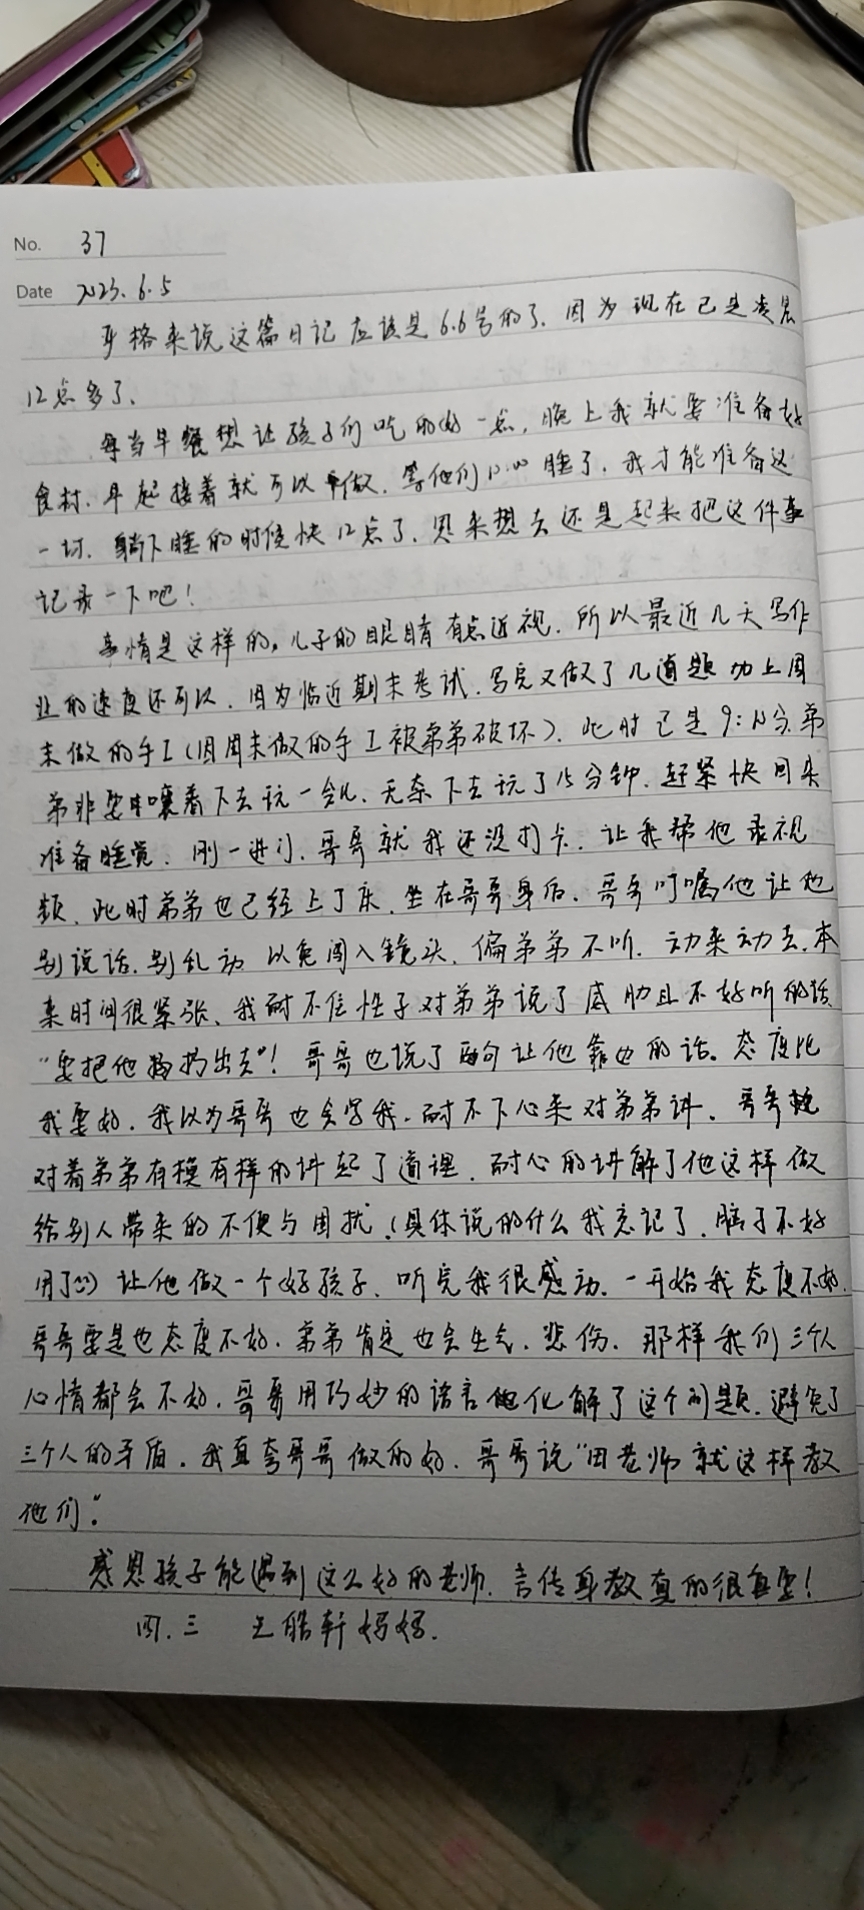 No. 37
Date 2023.6.5
严格来说这篇日记应该是6.6号的了、因为现在已是凌晨
12点多了、
每当早餐想让孩子们吃的好一点，晚上我就要准备好
食材、早起接着就可以做、等他们10:00睡了、我才能准备这
一切、躺下睡的时候快12点了、思来想去还是起来把这件事
记录一下吧！
事情是这样的，儿子的眼睛有点近视、所以最近几天写作
业的速度还可以、因为临近期末考试、写完又做了几道题 加上周
末做的手工（因周末做的手工被弟弟破坏）、此时已是9:15分、弟
弟非要嚷着下去玩一会儿、无奈下去玩了15分钟、赶紧快回来
准备睡觉、刚一进门、哥哥就我还没打卡、让我帮他录视
频、此时弟弟也已经上了床、坐在哥哥身后、哥哥叮嘱他让他
别说话、别乱动 以免闯入镜头、偏弟弟不听、动来动去、本
来时间很紧张、我耐不住性子对弟弟说了威胁且不好听的话、
“要把他扔出去”！哥哥也说了两句让他靠边的话。态度比
我要好、我以为哥哥也会学我、耐不下心来对弟弟讲、哥哥就
对着弟弟有模有样的讲起了道理、耐心的讲解了他这样做
给别人带来的不便与困扰、（具体说的什么我忘记了、脑子不好
用了）让他做一个好孩子、听完我很感动、一开始我态度不好、
哥哥要是也态度不好、弟弟肯定也会生气、悲伤、那样我们三个人
心情都会不好、哥哥用巧妙的语言他化解了这个问题、避免了
三个人的矛盾、我直夸哥哥做的好、哥哥说“田老师就这样教
他们”
感恩孩子能遇到这么好的老师、言传身教真的很重要！
四.三 王皓轩妈妈.